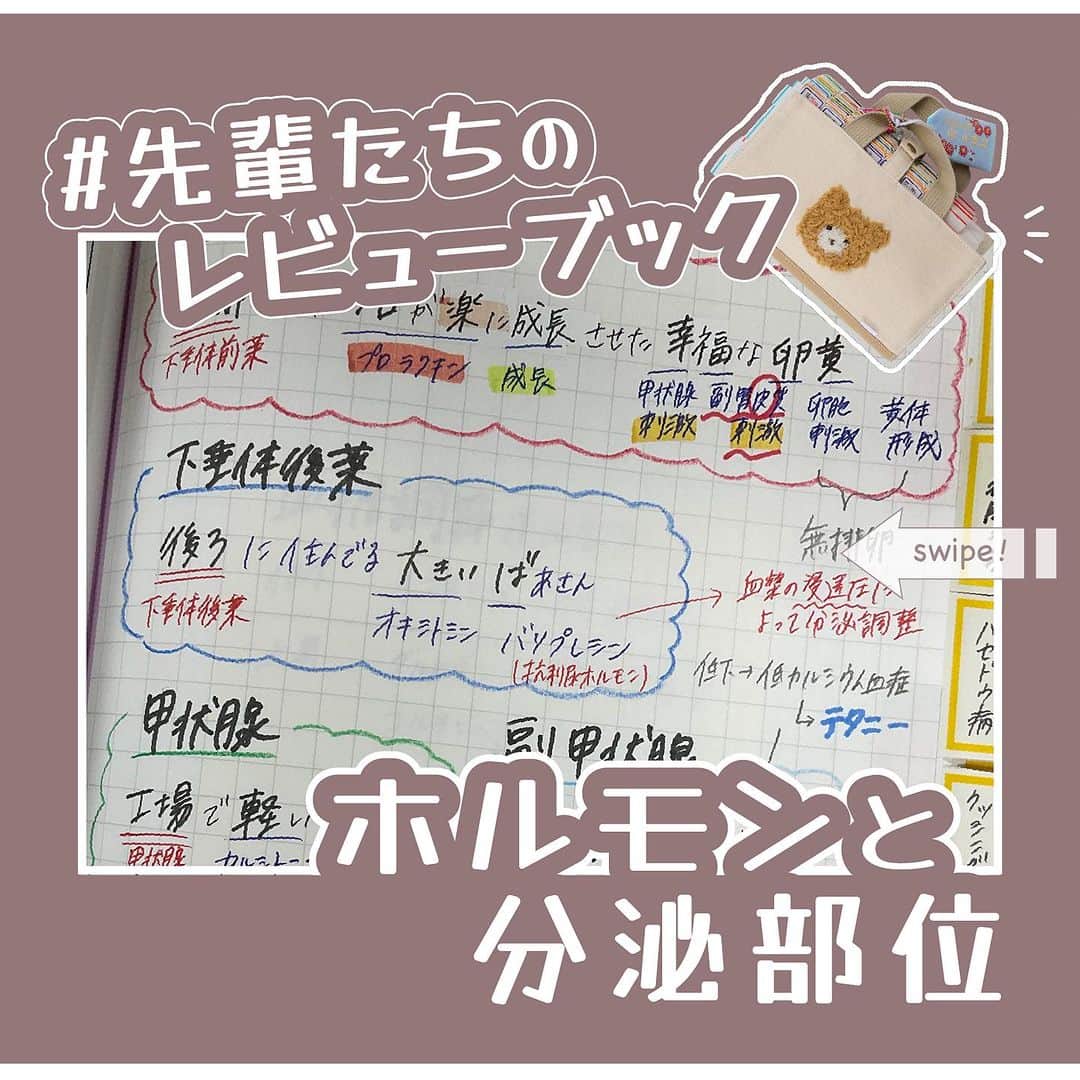 #先輩たちの
レビューブック
が楽に成長させた幸福な卵黄
下垂体前葉
プロラクチン
成長
甲状腺
刺激
副腎皮質
刺激
卵胞
刺激
黄体
形成
下垂体後葉
無排卵
swipe!
後ろに住んでる大きいばあさん
下垂体後葉
オキシトシン
バソプレシン
(抗利尿ホルモン)
血漿の浸透圧に
よって分泌調整
低下→低カルシウム血症
テタニー
バセドウ病
甲状腺
副甲状腺
工場で軽い
甲状腺
カルシトニン
クッシング
ホルモンと
分泌部位